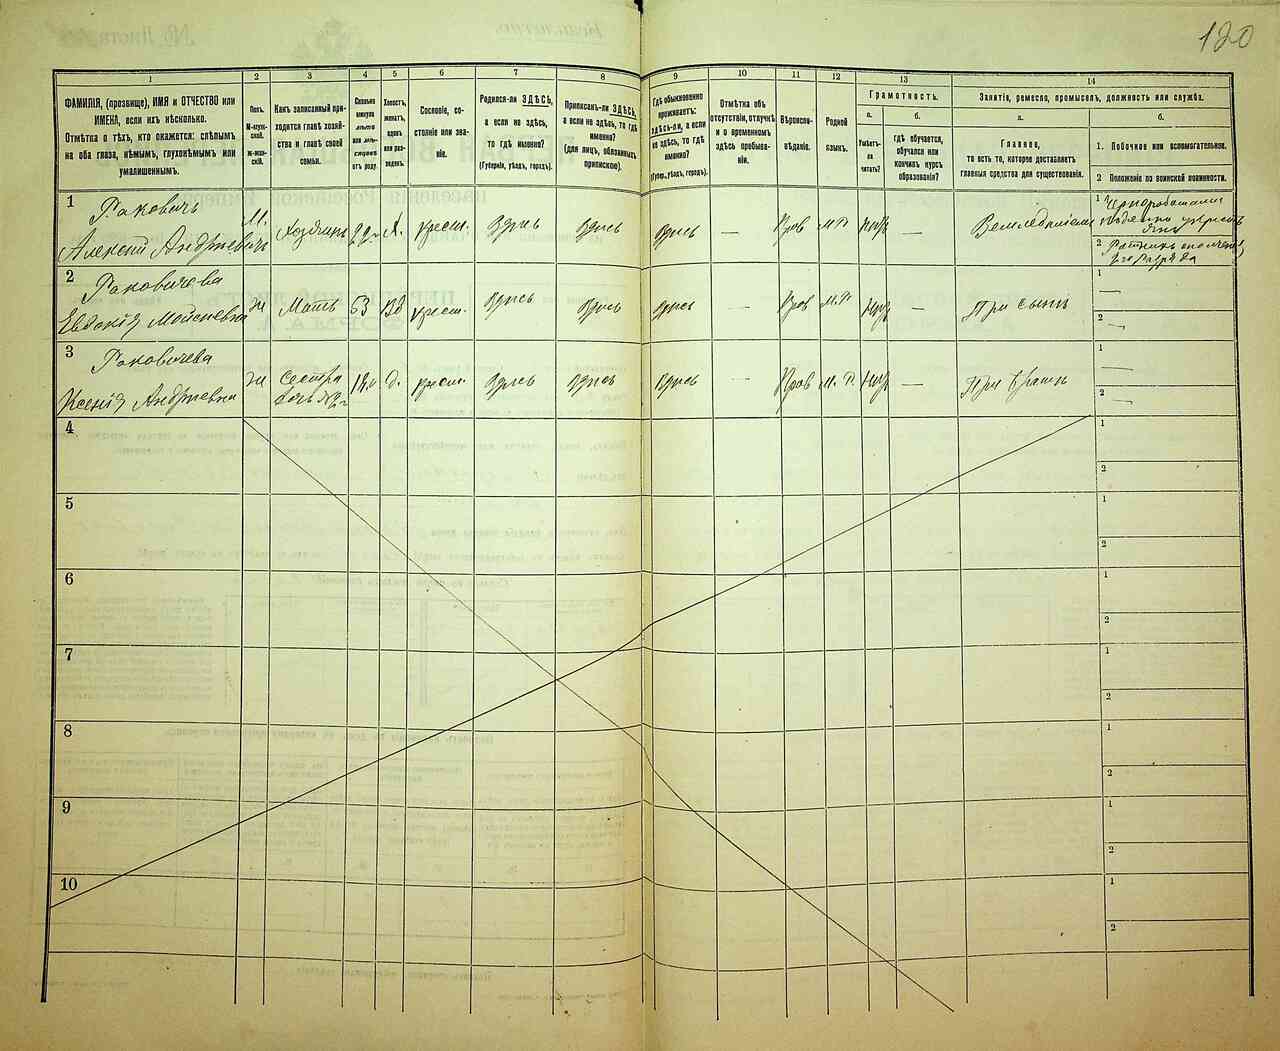 120
1 2 3 4 5 6 7 8 9 10 11 12 13 14
ФАМИЛІЯ, (прозвище), ИМЯ и ОТЧЕСТВО или
ИМЕНА, если ихъ нѣсколько.
Отмѣтка о тѣхъ, кто окажется: слѣпымъ
на оба глаза, нѣмымъ, глухонѣмымъ или
умалишеннымъ.
Полъ.
М-мужской.
Ж-женскій.
Какъ записанный при-
ходится главѣ хозяй-
ства и главѣ своей
семьи.
Сколько
минуло
лѣтъ
или мѣ-
сяцевъ
отъ роду
Холостъ,
женатъ,
вдовъ
или раз-
веденъ.
Сословіе, со-
стояніе или зва-
ніе.
Родился-ли ЗДѢСЬ,
а если не здѣсь,
то гдѣ именно?
(Губернія, уѣздъ, городъ).
Приписанъ-ли ЗДѢСЬ,
а если не здѣсь, то гдѣ
именно?
(для лицъ, обязанныхъ
припискою).
Гдѣ обыкновенно
проживаетъ:
здѣсь-ли, а если
не здѣсь, то гдѣ
именно?
(Губер., уѣздъ, городъ).
Отмѣтка объ
отсутствіи, отлучкѣ
и о временномъ
здѣсь пребыва-
ніи.
Вѣроиспо-
вѣданіе.
Родной
языкъ.
Грамотность.
а.
Умѣетъ-
ли
читать?
б.
гдѣ обучается,
обучался или
кончилъ курсъ
образованія?
Занятіе, ремесло, промыселъ, должность или служба.
а.
Главное,
то есть то, которое доставляетъ
главныя средства для существованія.
б.
1. Побочное или вспомогательное.
2 Положеніе по воинской повинности.
1 Раковичъ М. Хозяинъ Х. крест. Здѣсь Здѣсь Здѣсь — Прав М.Р. —
Алексѣй Андреевичъ
2
2 Раковичева Ж Мать 63 Вд крест. Здѣсь Здѣсь Здѣсь — Прав М.Р. — При сынѣ 1 —
Евдокія Мойсеевна 2 —
3 Раковичева Ж Сестра д. крест. Здѣсь Здѣсь Здѣсь — Прав М.Р. — При братѣ 1 —
Ксенія Андреевна 2 —
4 1
2
5 1
2
6 1
2
7 1
2
8 1
2
9 1
2
10 1
2